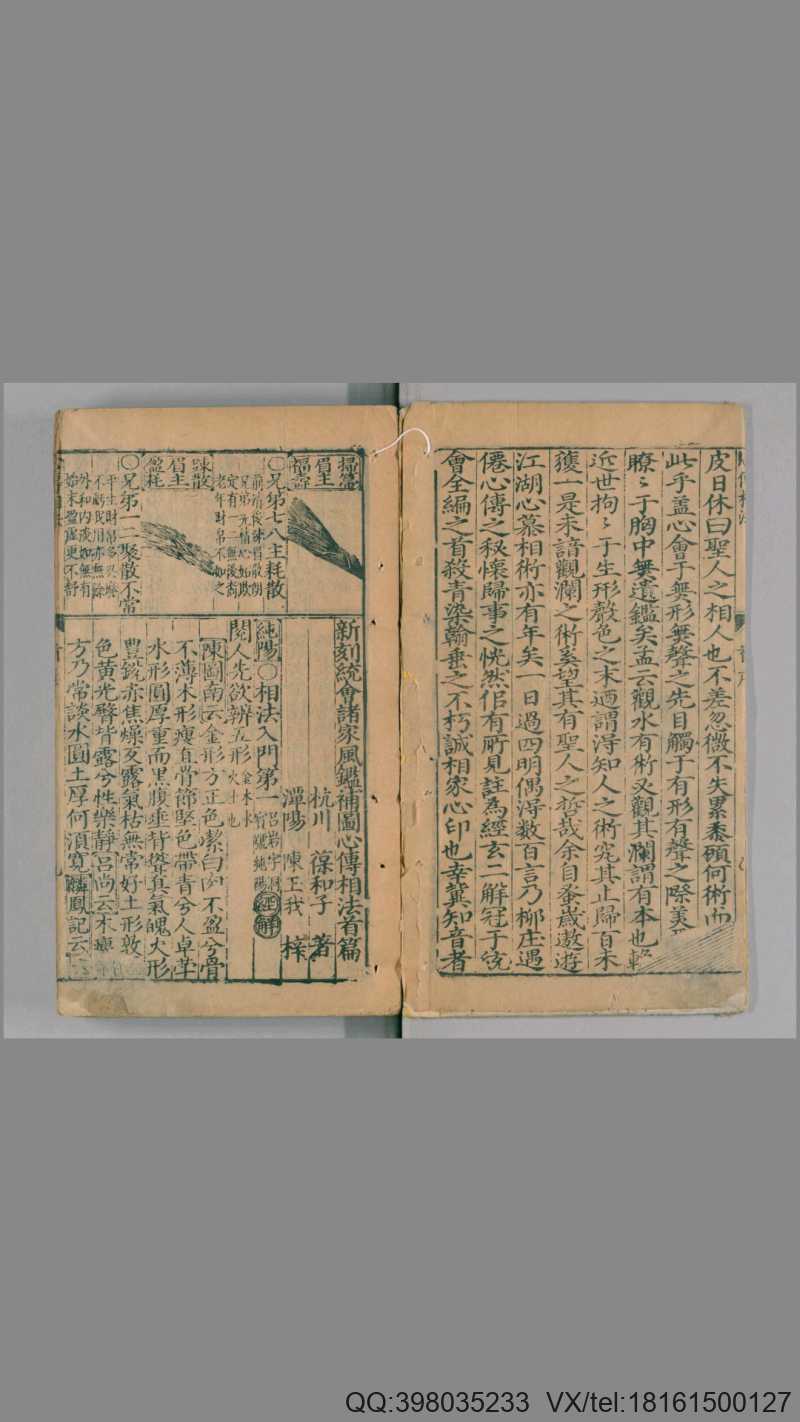 皮日休曰聖人之相人也不差忽微不失累黍顧何術而
此乎盖心會于無形無聲之先目觸于有形有聲之際美
瞭〻于胸中無遺鑑矣孟云觀水有術必觀其瀾謂有本也
近世拘〻于生形聲色之末迺謂淂知人之術究其止歸百未
獲一是未諳觀瀾之術奚望其有聖人之哲哉余自蚤歲遨遊
江湖心慕相術亦有年矣一日過四明偶淂数百言乃柳庄遇
僊心傳之秘懷歸事之恍然佀有所見註為經玄二解冠于
會全編之首殺青染翰垂之不朽誠相家心印也幸冀知音者
掃箒
眉主
福壽
○兄第七八主耗散
前清後疎眉散朗
兄弟无情心妬欺
定有一二無後裔
老年財帛不如之
踈散
眉主
盈耗
○兄第一二聚散不當
平生財帛多興廢
不虧我用亦無餘
外和内淡如無有
始末盈虛更不舒
新刻統會諸家風鑑補圖心傳相法首篇
杭川 葆和子 著
潭陽 陳玉我 梓
純陽○相法入門第一 呂岩字洞賓號純陽 註解
閱人先欲辨五形 金木水火土也
陳圖南云金形方正色潔白肉不盈兮骨
不薄木形瘦直骨節堅色帶青兮人卓犖
水形圓厚重而黑腹垂背聳真氣魄火形
豐銳赤焦燥反露氣枯無常好土形敦
色黄光臀背露兮性樂静呂尚云木瘦
方乃常談水圓土厚何湏寛麟鳳記云
QQ:398035233 VX/tel:18161500127